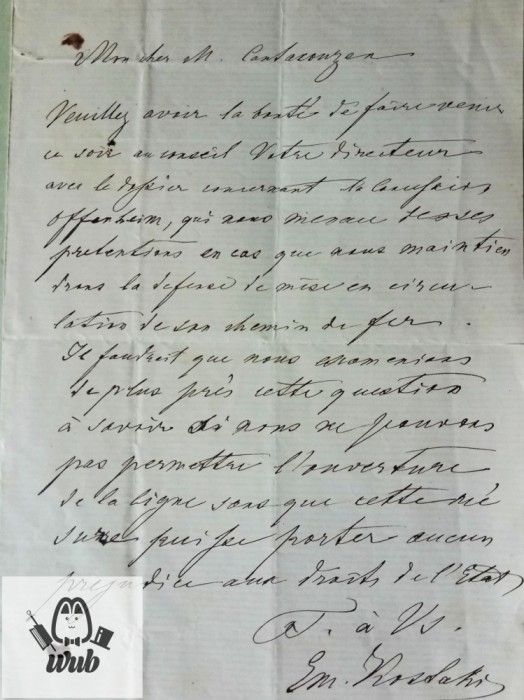 Mon cher M. Cantacuzen
Veuillez avoir la bonté de faire venir
ce soir au conseil Votre directeur
avec le dossier concernant la Concession
Offenheim, qui nous menace de ses
pretentions en cas que nous maintien
drons la defense de mise en circu
lation de son chemin de fer.
Il faudrait que nous examenions
de plus près cette question
à savoir si nous ne pouvons
pas permettre l'ouverture
de la ligne sans que cette me
sure puisse porter aucun
prejudice aux droits de l'Etat
T. à Vs.
Em. Kostaki
wub